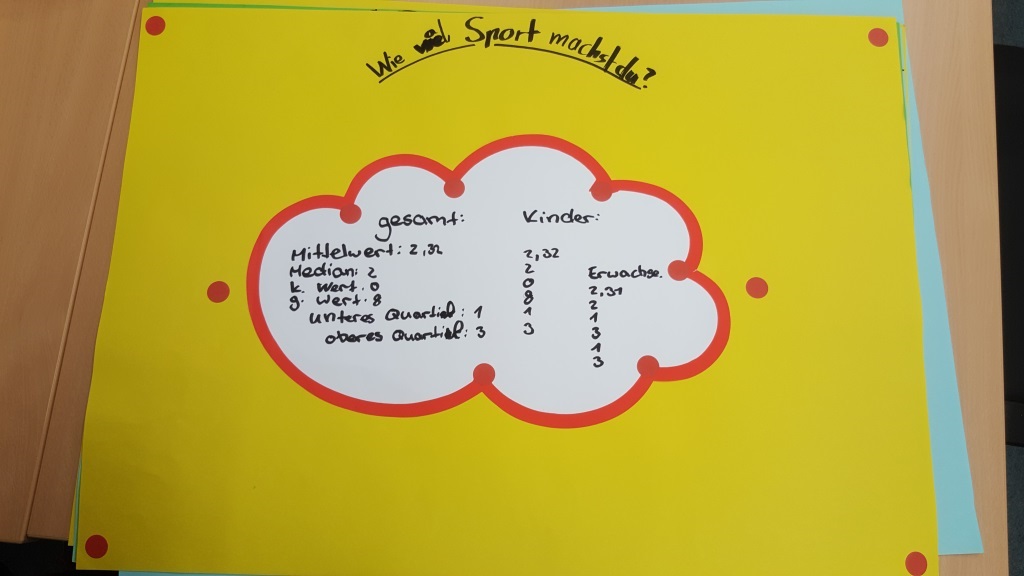 Wie viel Sport machst du?
gesamt:
Mittelwert: 2,32
Median: 2
k. Wert. 0
g. Wert. 8
unteres Quartiel: 1
oberes Quartiel: 3
Kinder:
2,32
2
0
8
1
3
Erwachse.
2,31
2
1
3
1
3